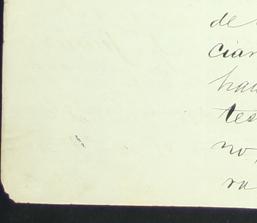 de
cian
hau
tes
no,
ra